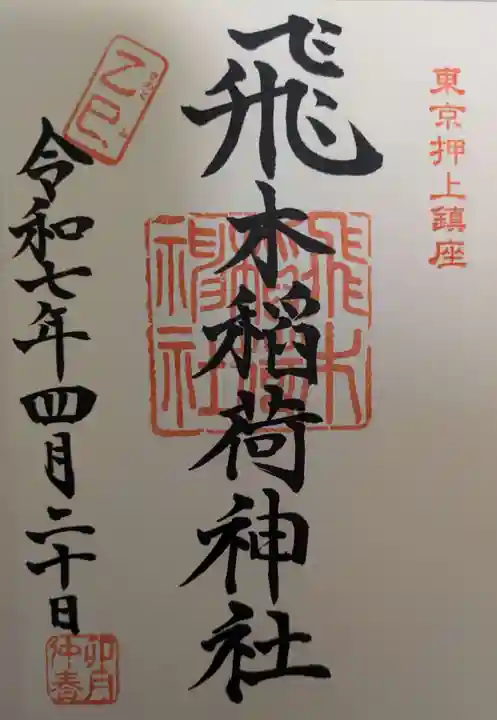 東京押上鎮座
飛木稲荷神社
飛木稲荷神社
乙巳
令和七年四月二十日
卯月
仲春